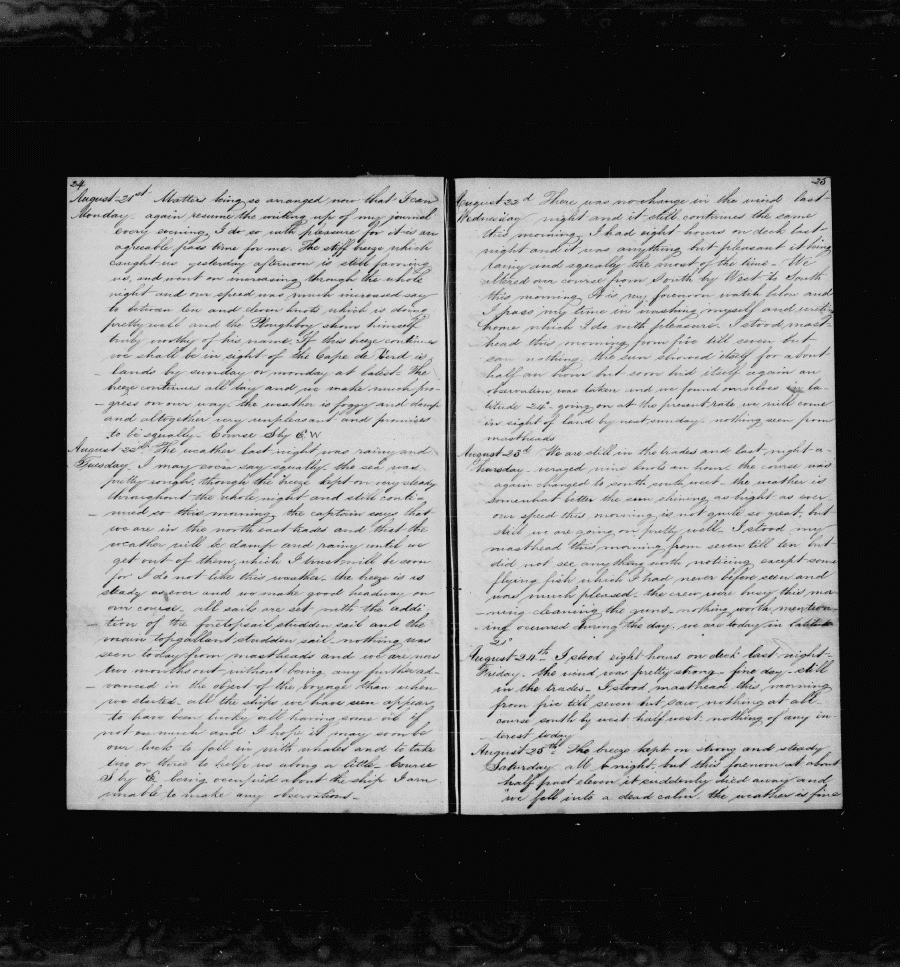 24
August 21st Matters being so arranged now that I can
Monday. again resume the writing up of my journal
every evening, I do so with pleasure for it is an
agreable pass time for me. The stiff breeze which
caught us yesterday afternoon is still favoring
us, and went on increasing through the whole
night and our speed was much increased say
to between ten and eleven knots which is doing
pretty well and the Ploughboy shows himself
truly worthy of his name. If this breeze continues
we shall be in sight of the Cape de Verd is-
lands by sunday or monday at latest. The
breeze continues all day and we make much pro-
gress on our way, the weather is foggy and damp
and altogether very unpleasant and promises
to be squally. Course S by E. W
August 22nd The weather last night was rainy and
Tuesday. I may even say squally, the sea was
pretty rough, though the breeze kept on very steady
throughout the whole night and still conti-
nued so this morning, the captain says that
we are in the north east trades and that the
weather will be damp and rainy until we
get out of them, which I trust will be soon
for I do not like this weather. the breeze is as
steady as ever and we make good headway on
our course. all sails are set with the addi-
tion of the foretopsail studden sail and the
main topgallant studden sail. nothing was
seen today from mastheads and we are now
two months out without being any further ad-
vanced in the object of the voyage than when
we started. all the ships we have seen appear
to have been lucky all having some oil if
not on much and I hope it may soon be
our luck to fall in with whales and to take
two or three to help us along a little. Course
S by E. being occupied about the ship I am
unable to make any observations.
25
August 22d There was no change in the wind last
Wednesday night and it still continues the same
this morning. I had eight hours on deck last
night and it was anything but pleasant it being
rainy and squally the most of the time. We
altered our course from South by West to South
this morning. It is my forenoon watch below and
I pass my time in washing myself and writing
home which I do with pleasure. I stood mast-
head this morning from five till seven but
saw nothing. the sun showed itself for about
half an hour but soon hid itself again an
observation was taken and we found ourselves in la-
titude 24° going on at the present rate we will come
in sight of land by next sunday. nothing seen from
mastheads
August 23d We are still in the trades and last night a-
Thursday. veraged nine knots an hour. the course was
again changed to south south west. the weather is
somewhat better the sun shining as bright as ever
our speed this morning is not quite so great, but
still we are going on pretty well. I stood my
masthead this morning from seven till ten but
did not see anything worth noticing except some
flying fish which I had never before seen and
was much pleased. the crew were busy this mor-
ning cleaning the guns. nothing worth mention-
ing occured during the day. we are today in latitude
21°
August 24th I stood eight hours on deck last night.
Friday. the wind was pretty strong. fine day. still
in the trades. I stood masthead this morning
from five till seven but saw nothing at all.
course south by west half west. nothing of any in-
terest today
August 25th The breeze kept on strong and steady
Saturday all night, but this forenoon at about
half past eleven it suddenly died away and
we fell into a dead calm. the weather is fine